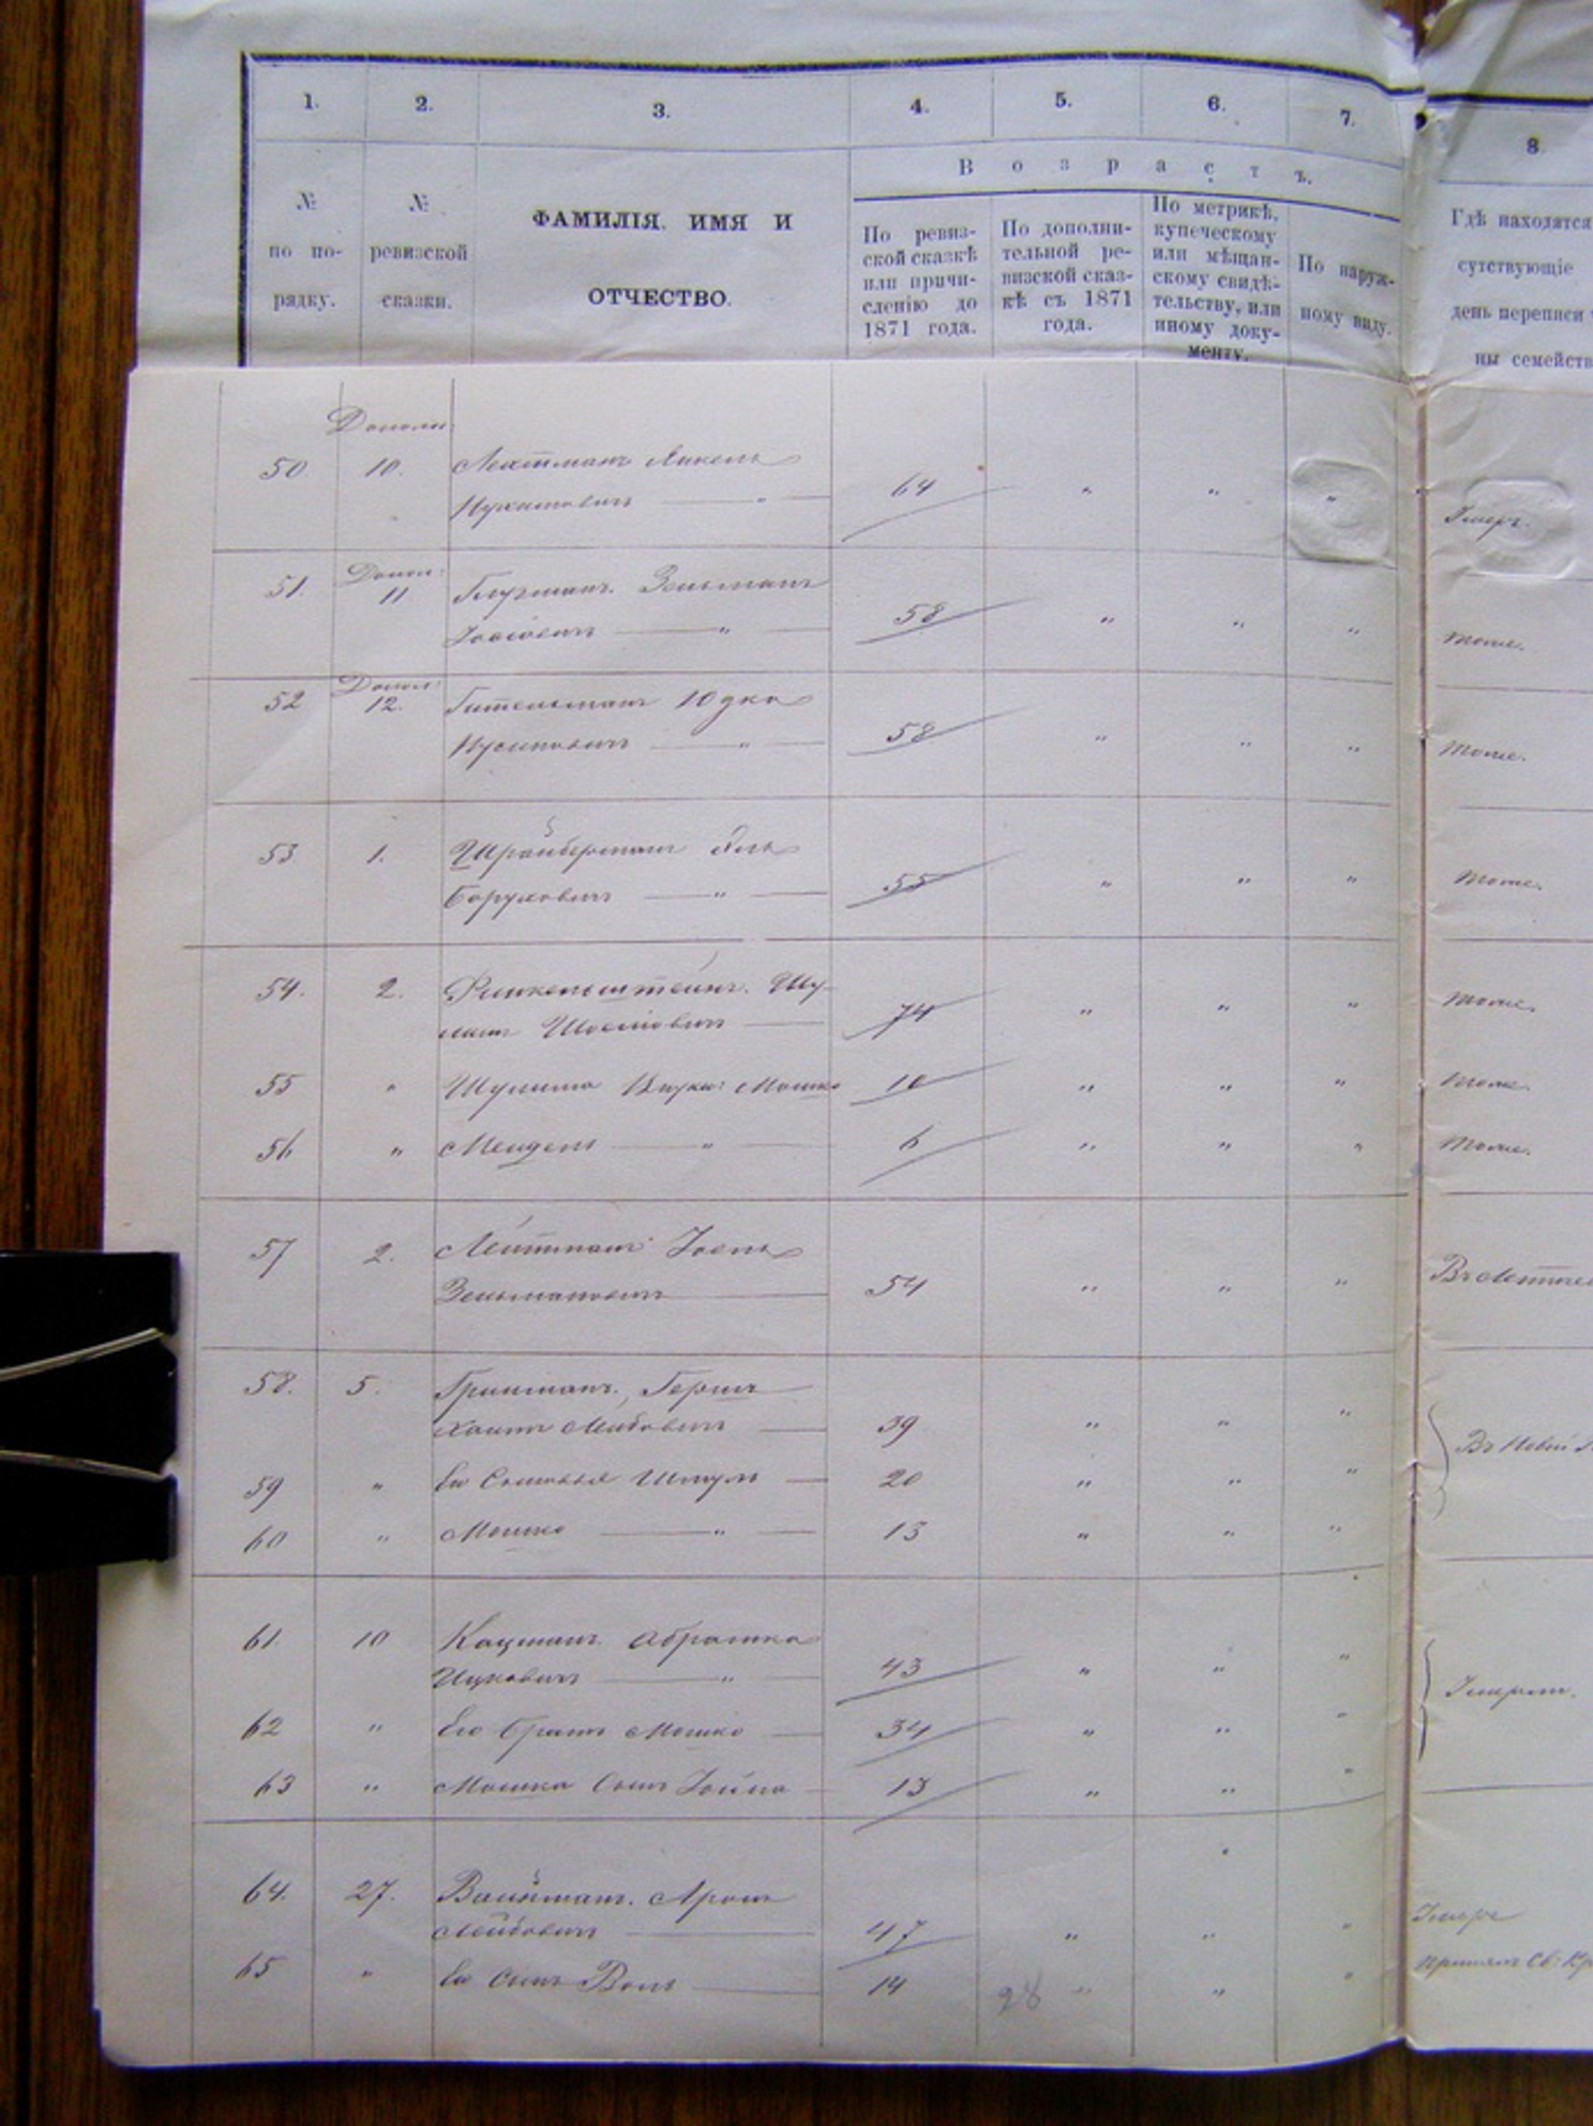 1. 2. 3. 4. 5. 6. 7. 8
Возрастъ.
№ по по-рядку.
№ ревизской сказки.
ФАМИЛІЯ. ИМЯ И
ОТЧЕСТВО.
По ревиз-
ской сказкѣ
или причи-
сленію до
1871 года.
По дополни-
тельной ре-
визской сказ-
кѣ съ 1871
года.
По метрикѣ,
купеческому
или мѣщан-
скому свидѣ-
тельству, или
иному доку-
менту.
По наруж-
ному виду.
Гдѣ находятся
сутствующіе
день переписи
ны семейств
Дополн:
50 10. Лехтманъ Янкель
64 " " "
Умеръ.
51. Допол: 11 Зельманъ
Іосіовичъ " 58 " " " тоже.
52 Допол: 12. Гительманъ Юдка
" 58 " " " тоже.
53 1. Шрайберманъ
Боруховичъ " 55 " " " тоже.
54. 2. Финкельштейнъ. Шу-
лимъ 74 " " " тоже.
55 " Шулима Внуки: Мошко 10 " " " тоже.
56 " Мендель " 6 " " " тоже.
57 2. Лейтманъ Іосель
Зельмановичъ 54 " " "
58. 5. Гринманъ, Гершъ
Хаимъ Лейбовичъ 39 " " "
59 " Его Сыновья Шмуль 20 " " "
Въ Новой
60 " Мошко " 13 " " "
61. 10 Кацманъ. Абрамка
Ицковичъ " 43 " " "
Умерли.
62 " Его братъ Мошко 34 " " "
63 " Мошка Сынъ Іойна 13 " " "
64. 27. Вайнманъ. Аронъ
Лейбовичъ 47 " " "
Умеръ
65 " Его Сынъ Воль 14 28 " " "
принялъ Св: Кр